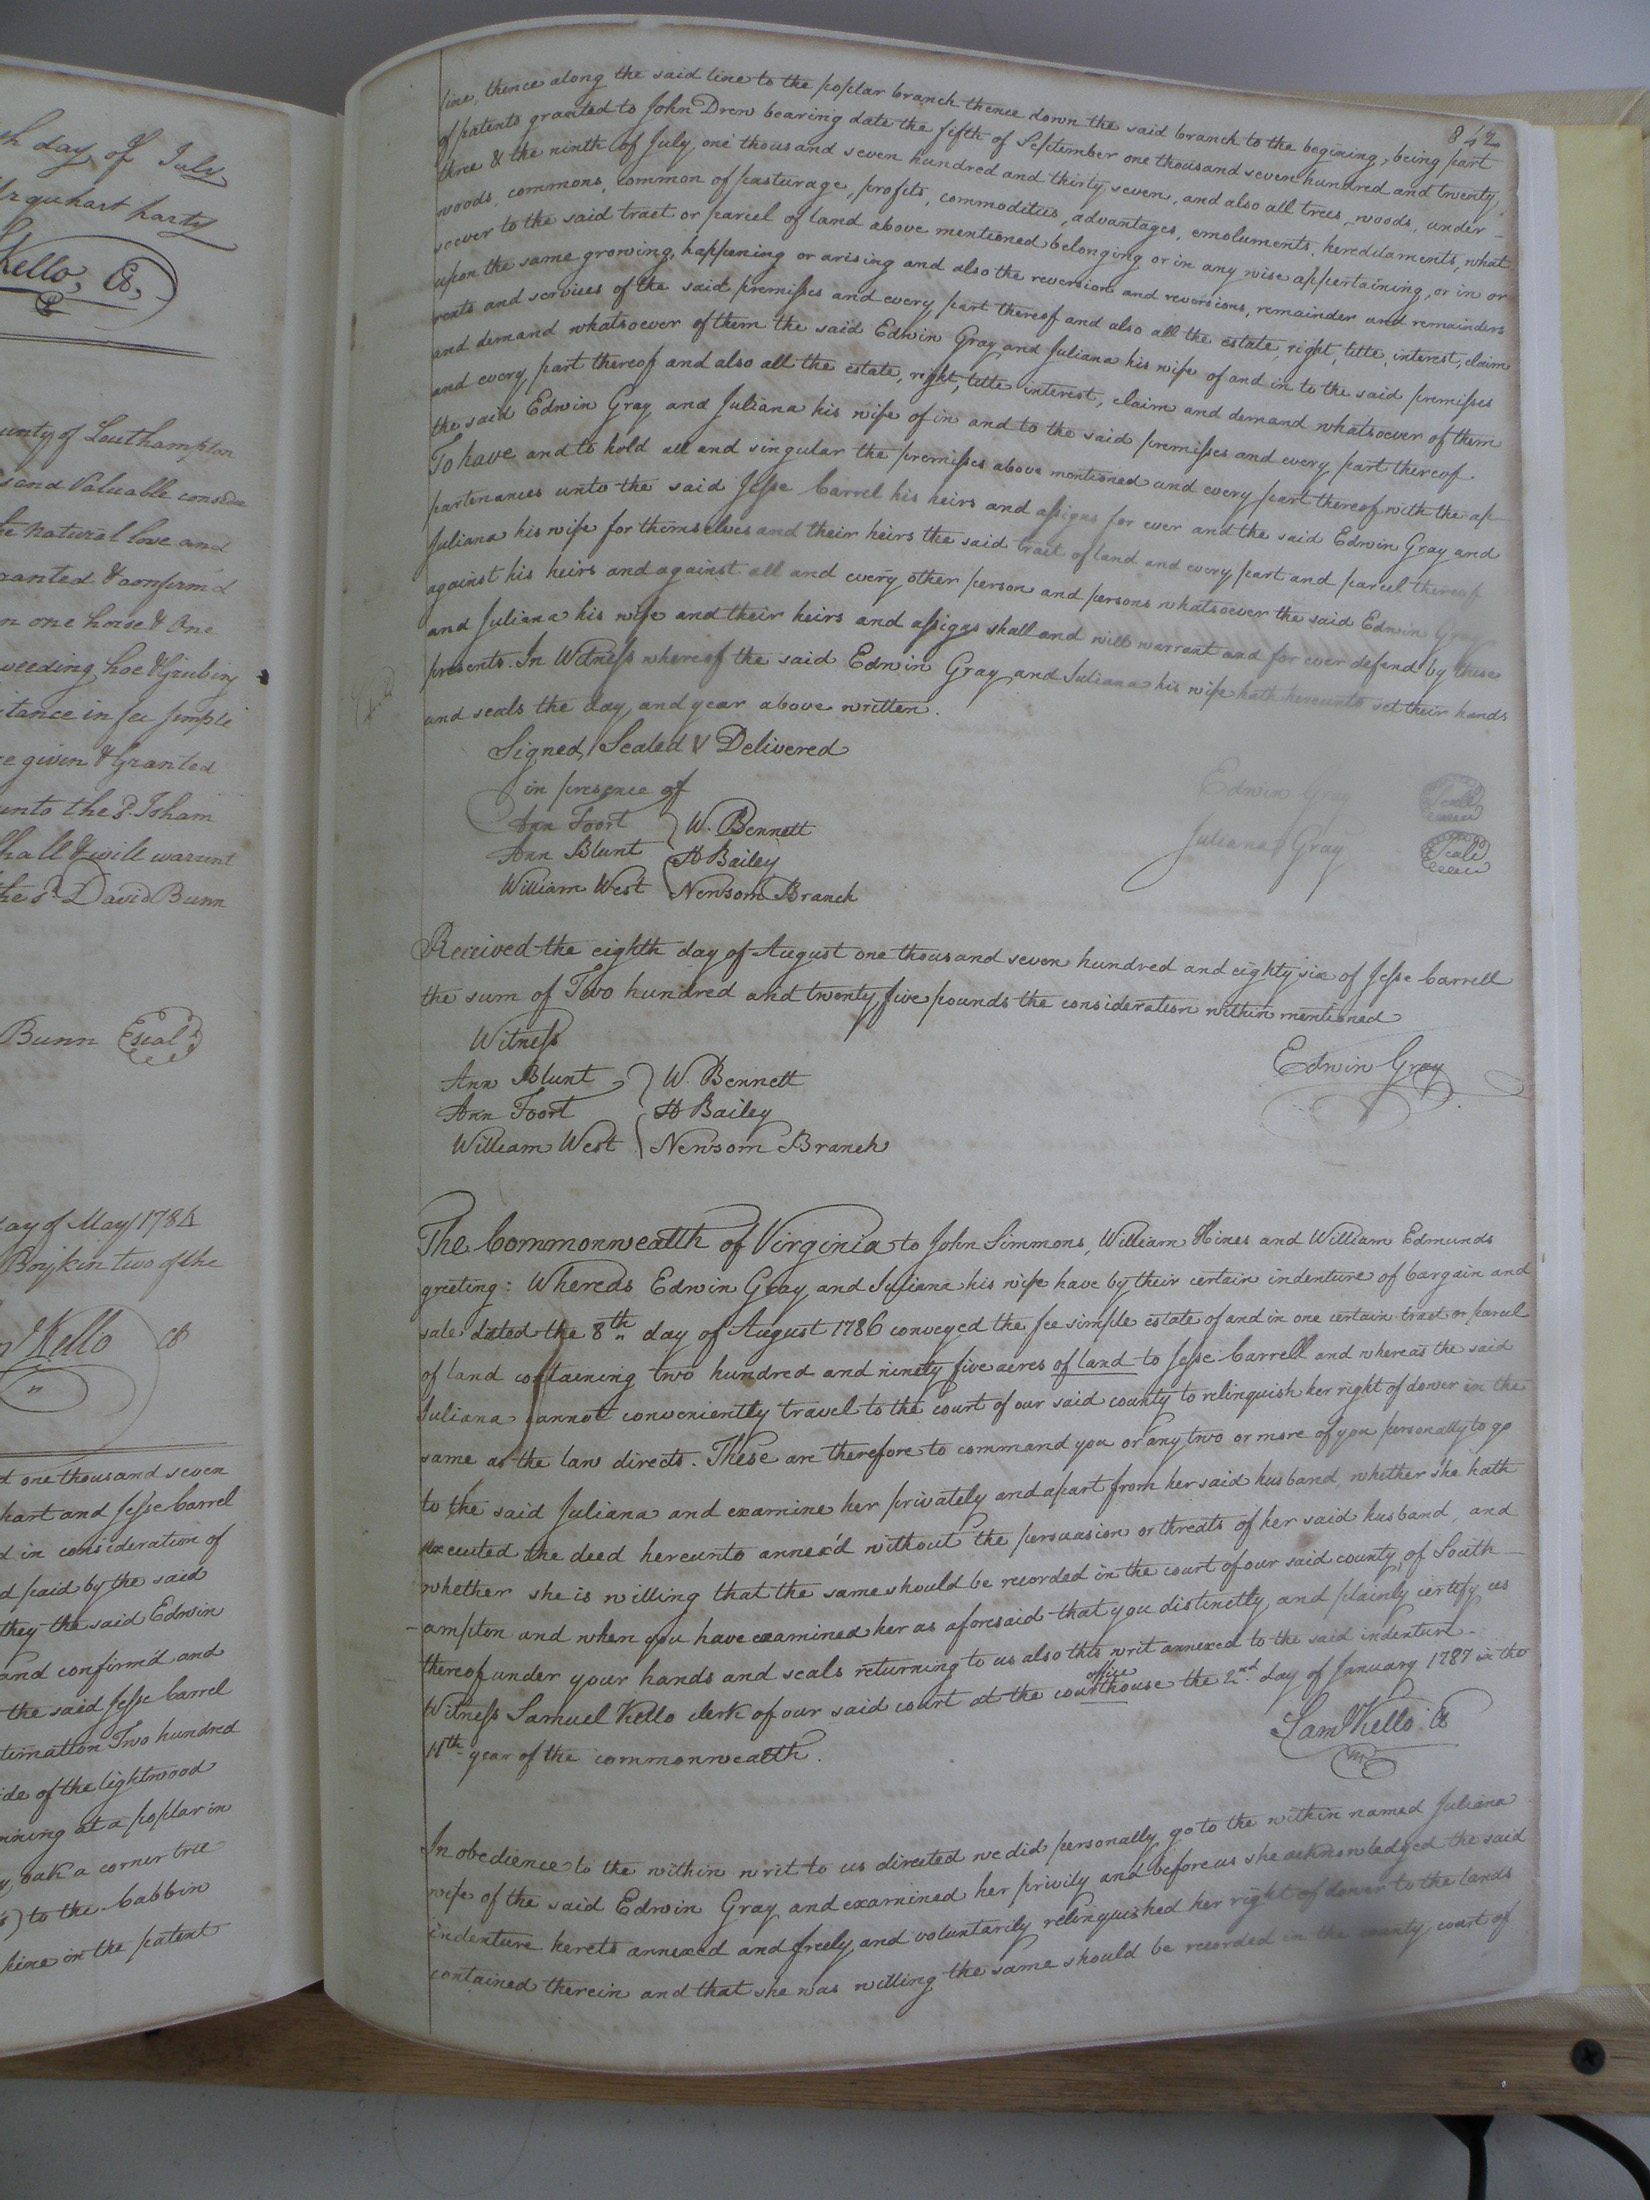 th day of July
Urquhart party
Kello, Ck
unty of Southampton
s and Valuable conside
he natural love and
ranted & confirm'd
n one horse & One
weeding hoe & Grubing
itance in fee simple
re given & Granted
unto the sd. Isham
shall & will warrent
the sd. David Bunn
Bunn seal
day of May 1784
Boykin two of the
Kello Ck
d one thousand seven
hart and Jesse Carrel
d in consideration of
d paid by the said
they the said Edwin
and confirm'd and
the said Jesse Carrel
timation Two hundred
ide of the lightwood
nning at a poplar in
y oak a corner tree
) to the Cabbin
line in the patent
842
line, thence along the said line to the poplar branch thence down the said branch to the begining, being part
of patents granted to John Drew bearing date the fifth of September one thousand seven hundred and twenty
three & the ninth of July one thousand seven hundred and thirty seven, and also all trees, woods, under-
woods, commons, common of pasturage, profits, commodities, advantages, emoluments, hereditaments, what
soever to the said tract or parcel of land above mentioned belonging or in any wise appertaining, or in or
upon the same growing, happening or arising and also the reversion and reversions, remainder and remainders
rents and services of the said premisses and every part thereof and also all the estate, right, title, interest, claim
and demand whatsoever of them the said Edwin Gray and Juliana his wife of and in to the said premisses
and every part thereof and also all the estate, right, title interest, claim and demand whatsoever of them
the said Edwin Gray and Juliana his wife of in and to the said premisses and every part thereof.
To have and to hold all and singular the premisses above mentioned and every part thereof with the ap-
partenances unto the said Jesse Carrel his heirs and assigns for ever and the said Edwin Gray and
Juliana his wife for themselves and their heirs the said tract of land and every part and parcel thereof
against his heirs and against all and every other person and persons whatsoever the said Edwin Gray
and Juliana his wife and their heirs and assigns shall and will warrant and for ever defend by these
presents. In Witness whereof the said Edwin Gray and Juliana his wife hath hereunto set their hands
and seals the day and year above written.
Signed, Sealed & Delivered
in presence of
Ann Foort } W. Bennett
Ann Blunt B Bailey
William West Newsom Branch
Edwin Gray Seal
Juliana Gray Seal
Received the eighth day of August one thousand seven hundred and eighty six of Jesse Carrell
the sum of Two hundred and twenty five pounds the consideration within mentioned
Witness
Edwin Gray
Ann Blunt } W. Bennett
Ann Foort B Bailey
William West Newsom Branch
The Commonwealth of Virginia to John Simmons, William Hines and William Edmunds
greeting: Whereas Edwin Gray and Juliana his wife have by their certain indenture of bargain and
sale dated the 8th day of August 1786 conveyed the fee simple estate of and in one certain tract or parcel
of land containing two hundred and ninety five acres of land to Jesse Carrell and whereas the said
Juliana cannot conveniently travel to the court of our said county to relinquish her right of dower in the
same as the law directs. These are therefore to command you or any two or more of you personally to go
to the said Juliana and examine her privately and apart from her said husband, whether she hath
executed the deed hereunto annex'd without the persuasion or threats of her said husband, and
whether she is willing that the same should be recorded in the court of our said county of South-
-ampton and when you have examined her as aforesaid that you distinctly and plainly certify us
thereof under your hands and seals returning to us also this writ annexed to the said indenture
Witness Samuel Kello clerk of our said court at the courthouse office the 2nd. day of January 1787 in the
11th year of the commonwealth.
Saml Kello Ck
In obedience to the within writ to us directed we did personally go to the within named Juliana
wife of the said Edwin Gray and examined her privily and before us she acknowledged the said
indenture hereto annexed and freely and voluntarily relinquished her right of dower to the lands
contained therein and that she was willing the same should be recorded in the county court of